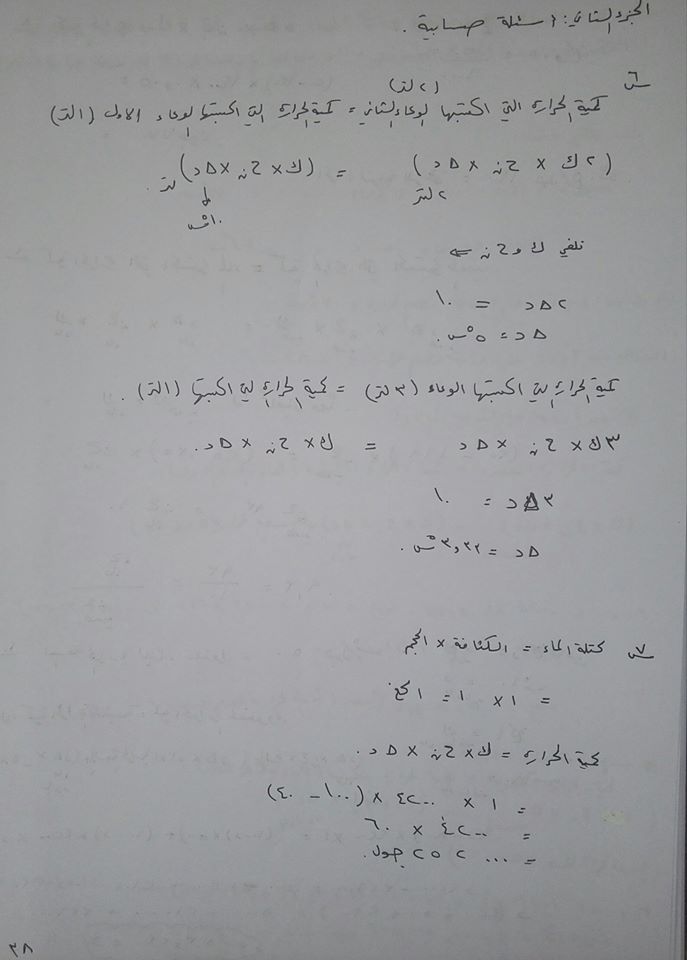 الجزء الثاني: أسئلة حسابية.
س٦
(٢ لتر)
كمية الحرارة التي اكتسبها الوعاء الثاني = كمية الحرارة التي اكتسبها الوعاء الاول (اللتر)
(٢ك × حن × ∆د) = (ك × حن × ∆د)
٢ لتر لتر
١٠°س
نلغي ك و حن ⇐
٢∆د = ١٠
∆د = ٥°س.
كمية الحرارة التي اكتسبها الوعاء (٣ لتر) = كمية الحرارة التي اكتسبها (اللتر).
٣ك × حن × ∆د = ك × حن × ∆د.
٣∆د = ١٠
∆د = ٣,٣٣°س.
س٧ كتلة الماء = الكثافة × الحجم
= ١ × ١ = ١ كغ
كمية الحرارة = ك × حن × ∆د.
= ١ × ٤٢٠٠ × (١٠٠ - ٤٠)
= ٤٢٠٠ × ٦٠
= ٢٥٢٠٠٠ جول.
٣٨